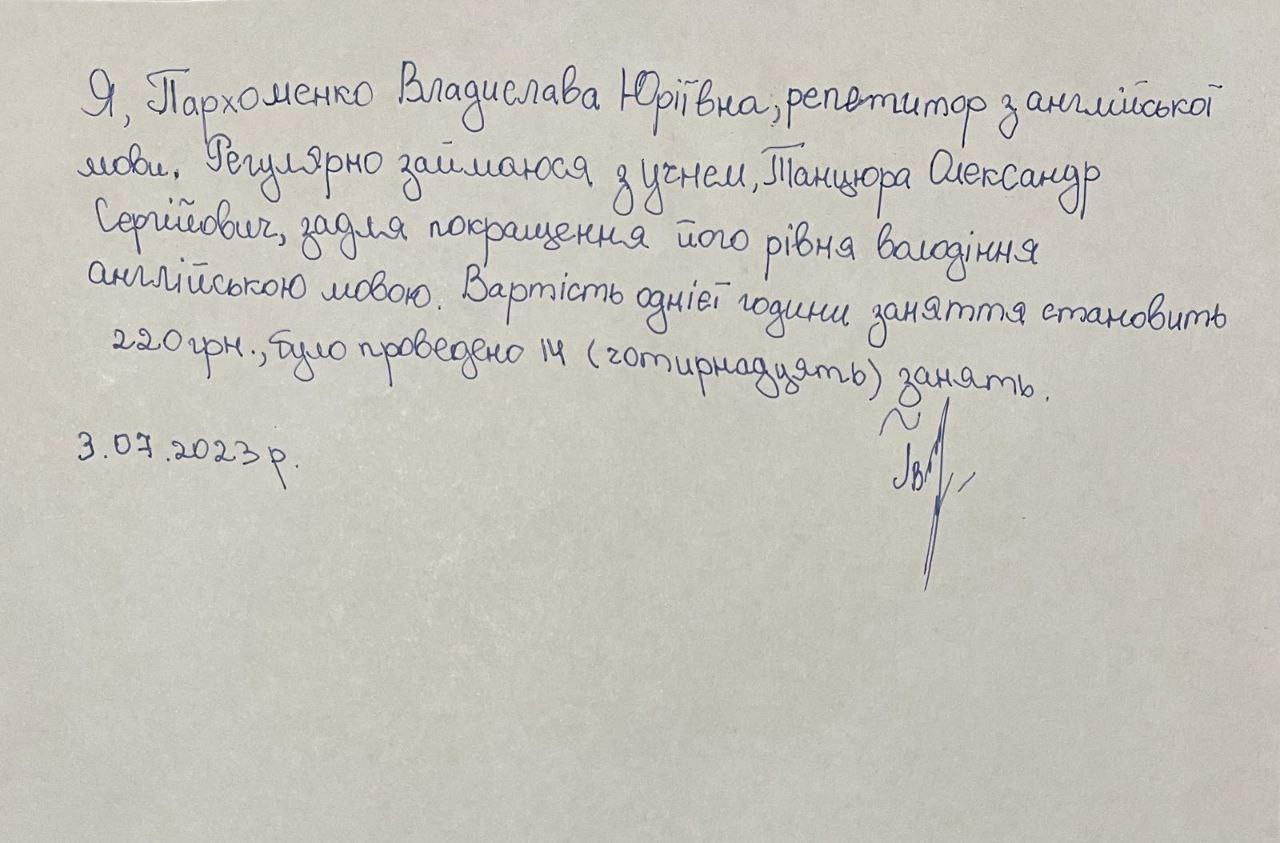 Я, Пархоменко Владислава Юріївна, репетитор з англійської
мови. Регулярно займаюся з учнем, Танцюра Олександр
Сергійович, задля покращення його рівня володіння
англійською мовою. Вартість однієї години заняття становить
220 грн., було проведено 14 (чотирнадцять) занять.
3.07.2023 р.